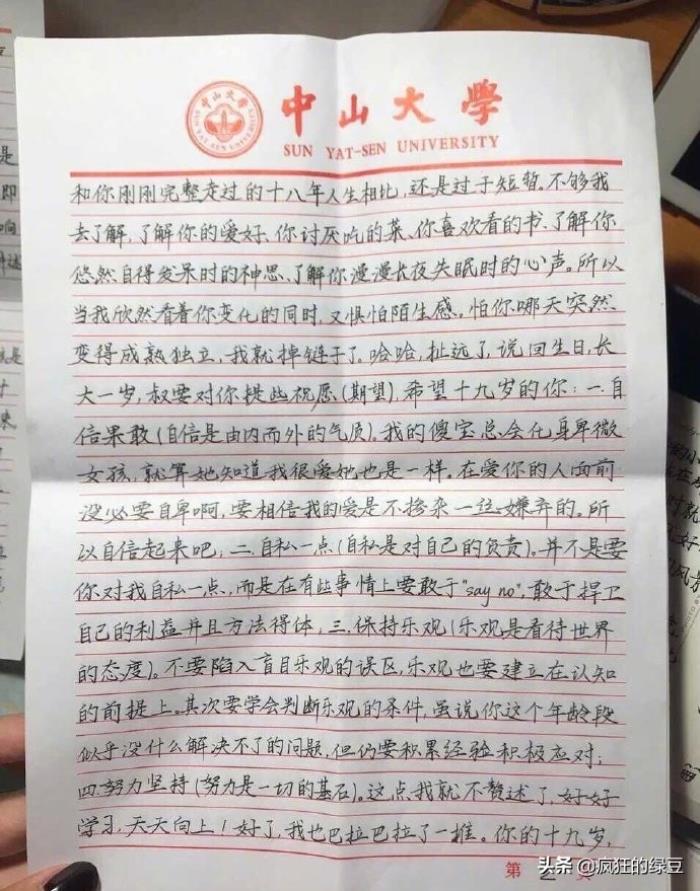 中山大學
SUN YAT-SEN UNIVERSITY
和你刚刚完整走过的十八年人生相比，还是过于短暂。不够我
去了解，了解你的爱好、你讨厌吃的菜、你喜欢看的书、了解你
悠然自得发呆时的神思、了解你漫漫长夜失眠时的心声。所以
当我欣然看着你变化的同时，又惧怕陌生感。怕你哪天突然
变得成熟独立，我就掉链子了。哈哈，扯远了，说回生日，长
大一岁，叔要对你提些祝愿(期望)，希望十九岁的你：一.自
信果敢(自信是由内而外的气质)。我的傻宝总会化身卑微
女孩，就算她知道我很爱她也是一样。在爱你的人面前
没必要自卑啊，要相信我的爱是不掺杂一丝嫌弃的。所
以自信起来吧，二.自私一点(自私是对自己的负责)。并不是要
你对我自私一点，而是在有些事情上要敢于"say no"，敢于捍卫
自己的利益并且方法得体，三.保持乐观(乐观是看待世界
的态度)。不要陷入盲目乐观的误区，乐观也要建立在认知
的前提上。其次要学会判断乐观的条件，虽说你这个年龄段
似乎没什么解决不了的问题，但仍要积累经验积极应对；
四.努力坚持(努力是一切的基石)。这点我就不赘述了，好好
学习，天天向上！好了，我也巴拉巴拉了一堆。你的十九岁，
第 页
头条 @疯狂的绿豆